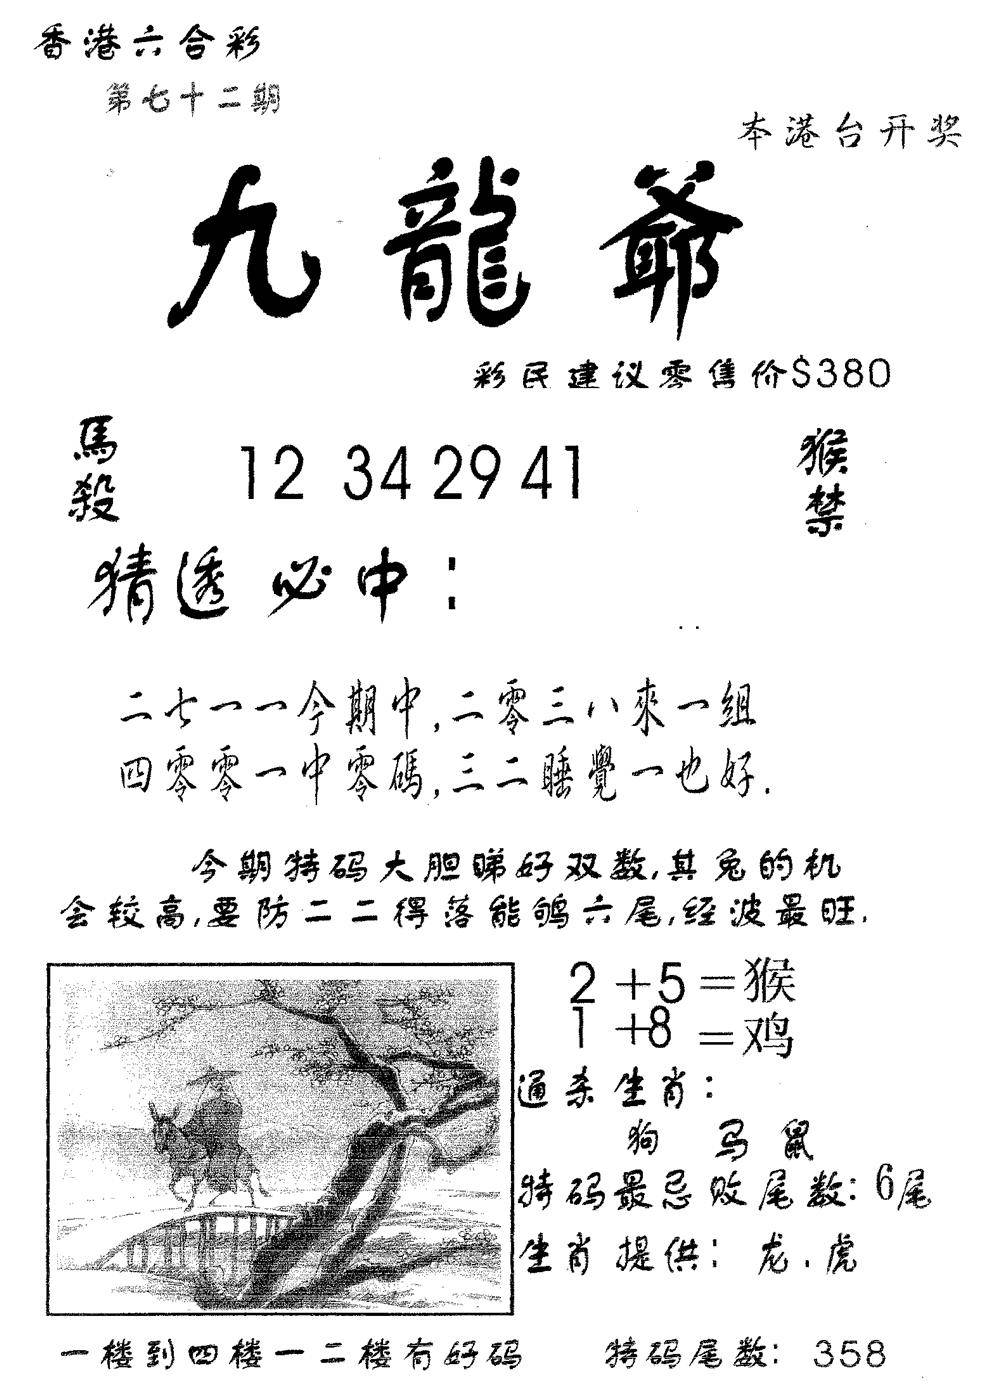 香港六合彩
第七十二期
本港台开奖
九龍爺
彩民建议零售价$380
馬殺
12 34 29 41
猴禁
猜透必中：
二七一一今期中,二零三八來一組
四零零一中零碼,三二睡覺一也好.
今期特码大胆睇好双数,其兔的机
会较高,要防二二得落能鸲六尾,经波最旺.
2+5=猴
1+8=鸡
通杀生肖：
狗 马 鼠
特码最忌败尾数：6尾
生肖提供：龙.虎
一楼到四楼一二楼有好码
特码尾数：358